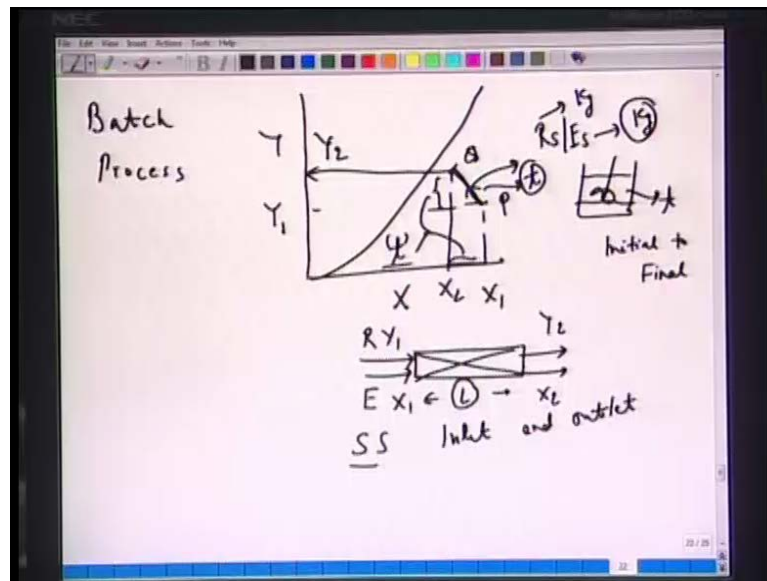 NEC
File Edit View Insert Actions Tools Help
B I
Batch
Process
Y
Y2
Y1
Q
P
t
ψ
X
X2
X1
Kg
Rs|Es → Kg
t
Initial to
Final
R Y1
Y2
E X1 ← L → X2
SS Inlet and outlet
22/25
22